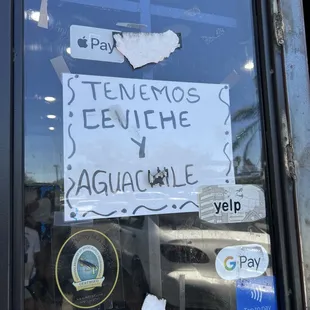 Pay
TENEMOS
CEVICHE
Y
AGUACHILE
yelp
G Pay